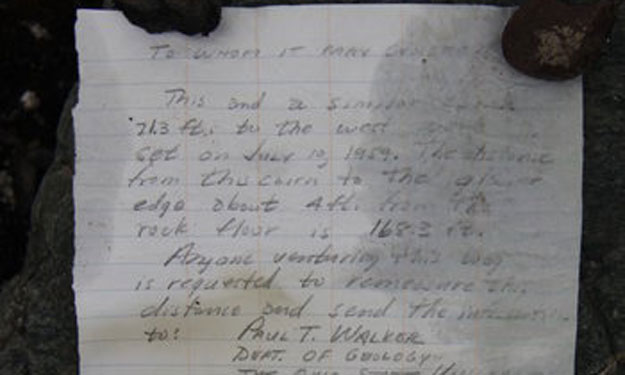 TO WHOM IT MAY CONCERN
This and a similar
21.3 ft. to the west were
set on July 10, 1959. The distance
from this cairn to the glacier
edge about 4 ft. from the
rock floor is 168.3 ft.
Anyone venturing this way
is requested to remeasure this
distance and send the information
to: PAUL T. WALKER
DEPT. OF GEOLOGY
THE OHIO STATE